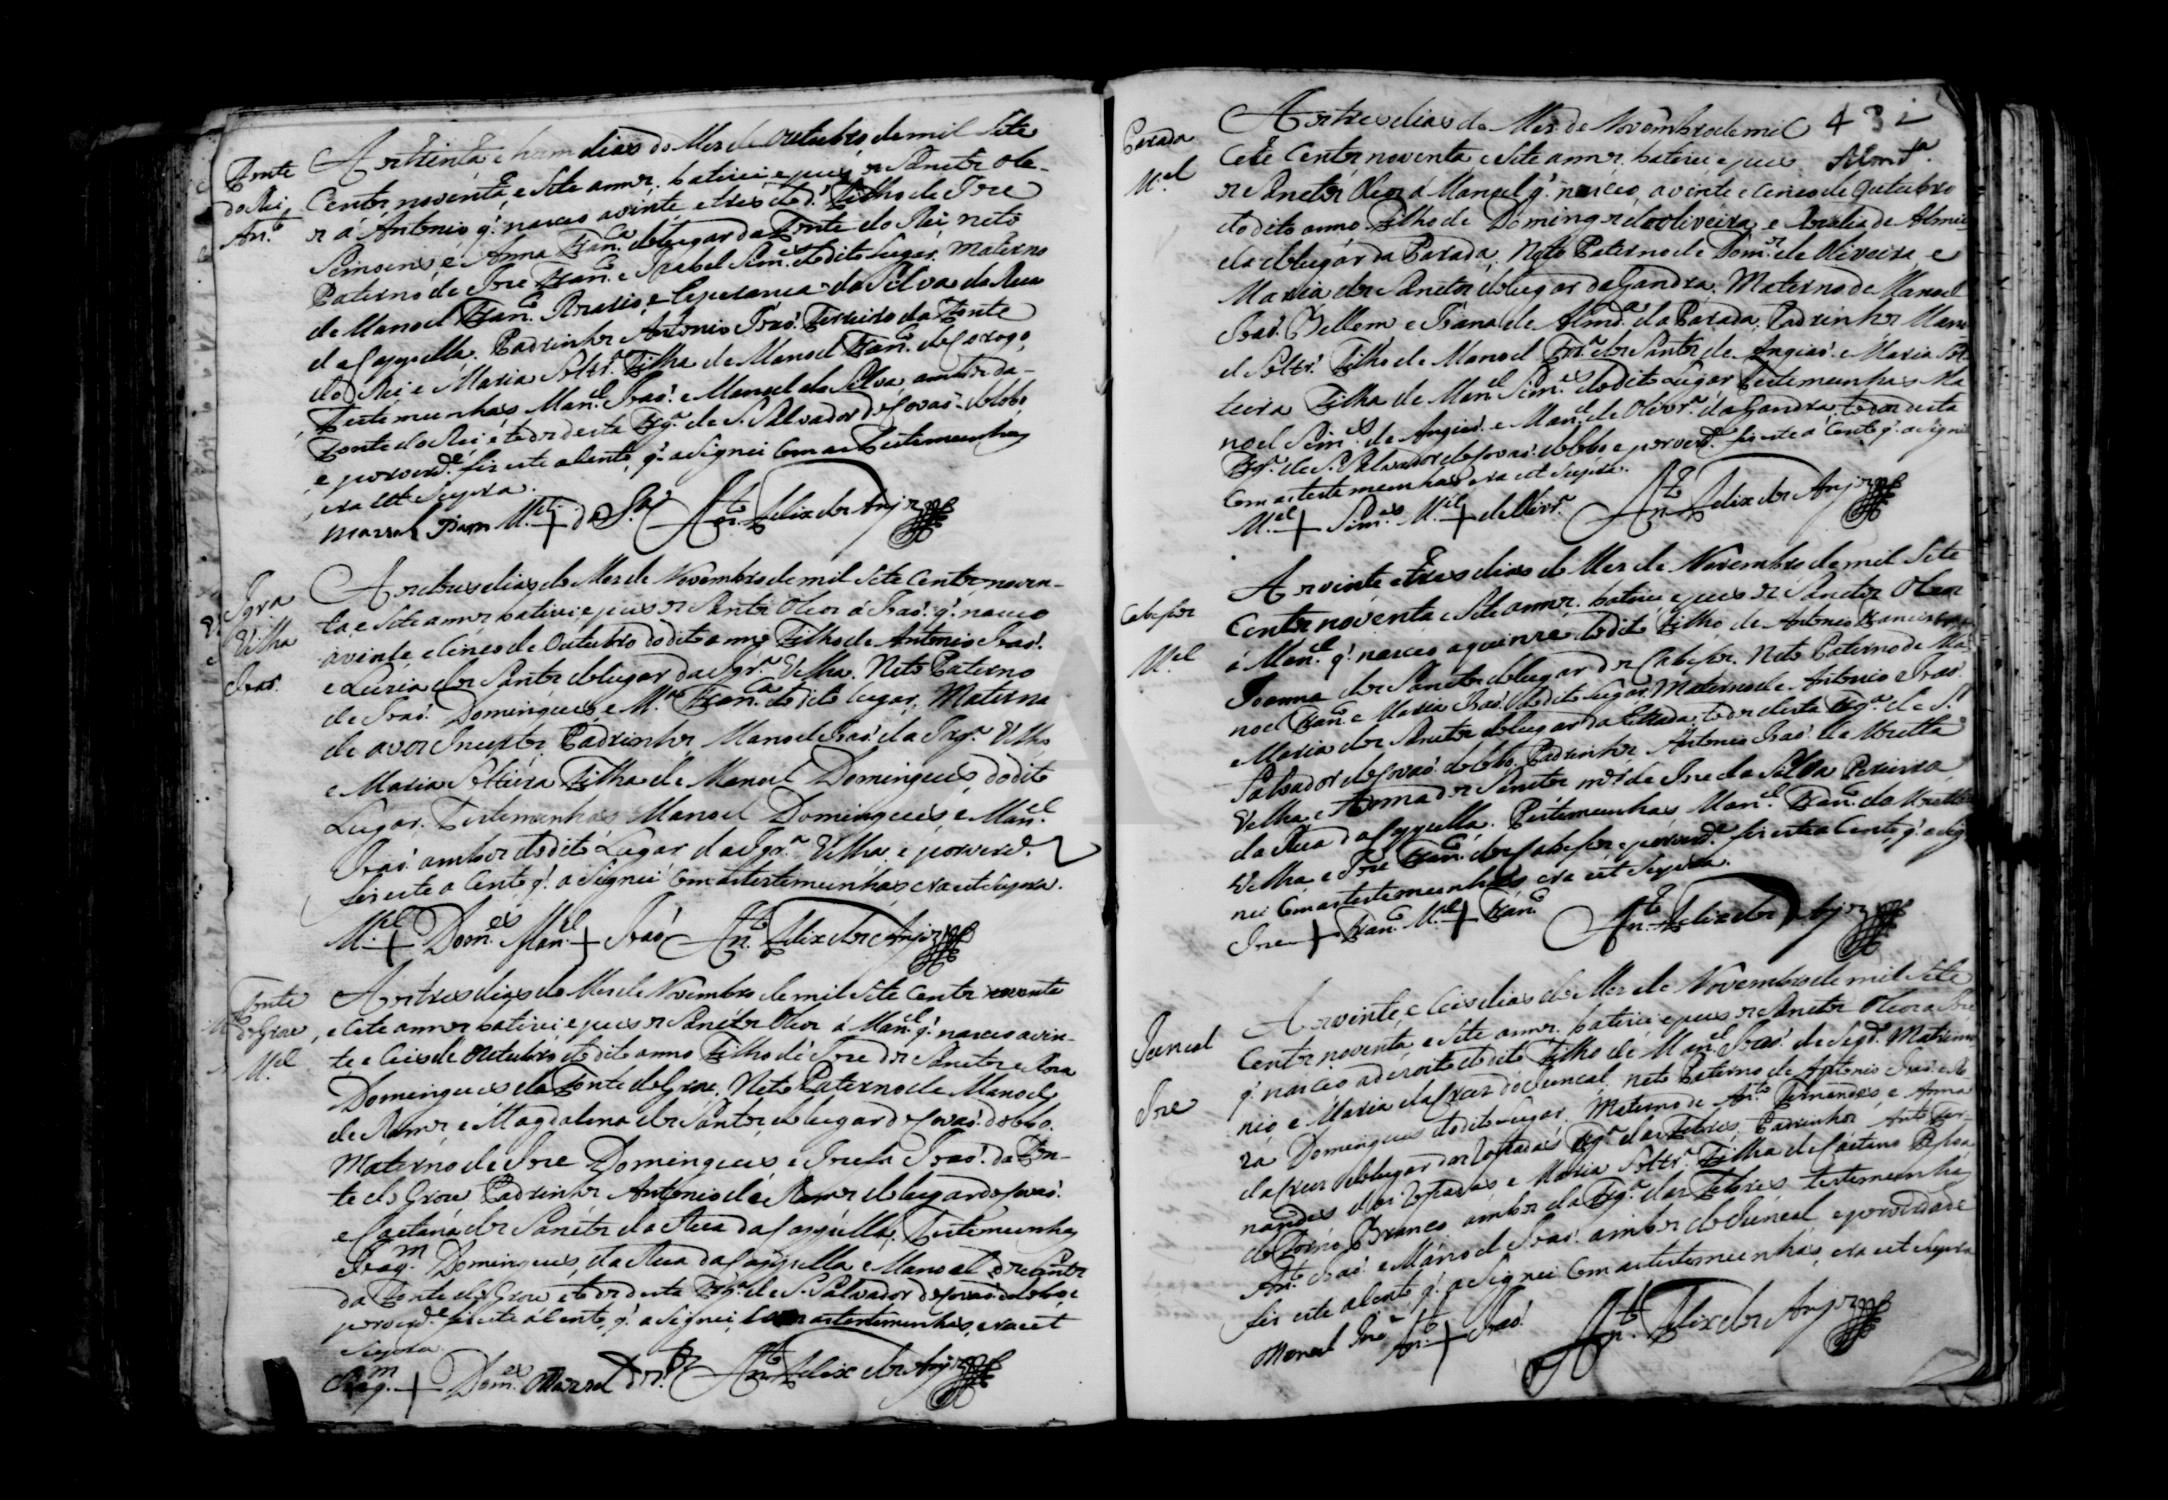 Fonte
do Rei
An.to
Aos trinta e hum dias do Mes de Outubro de mil Sete
Centos noventa, e Sete annos. batizei e pus os Sanctos Ole-
os a Antonio q. nasceo a vinte e tres do d.º Filho de Jose
Simoens, e Anna Fran.ca do lugar da Fonte do Rei, neto
Paterno de Jose Fran.co e Izabel Sim.es do dito Lugar. Materno
de Manoel Fran.co Rosario, e Esperança da Silva da Rua
da Cappella. Padrinhos Antonio Joaõ. da Fonte
do Rei e Maria Soltr.ª Filha de Manoel Fran.co
Testemunhas Man.el Joaõ. e Manoel da Silva ambos da
Fonte do Rei, e todos desta Frg.ª de S. Salvador de Covaõ. do Lobo
e por verd.e fis este asento, q. asignei Com as Testemunhas
era ut Supra.
Manoel Joam M.el + da S.ª An.to Felix dos Anjos
Igr.ª
Velha
Joaõ.
Aos tres dias do Mes de Novembro de mil Sete Centos, noven-
ta, e Sete annos, batizei e pus os Santos Oleos á Joaõ. q. nasceo
a vinte e Cinco de Outubro do dito anno Filho de Antonio Joaõ.
e Luzia dos Santos do lugar da Igr.ª Velha. Neto Paterno
de Joaõ. Domingues, e M.ª Fran.ca do dito lugar. Materno
de avos Incertos. Padrinhos Manoel Joaõ. da Igr.ª Velha
e Maria Solteira Filha de Manoel Domingues, do dito
Lugar. Testemunhas Manoel Domingues e Man.el
Joaõ. ambos do dito Lugar da Igr.ª Velha e por verd.e
fis este a Cento q. a Signei Com as testemunhas, era ut Supra.
M.el + Dom.es Man.el + Joaõ An.to Felix dos Anjos
Fonte
de Grou
M.el
Aos tres dias do Mes de Novembro de mil Sete Centos noventa
e Cete annos batizei e pus os Sanctos Oleos á Man.el q. nasceo a vin-
te e Ceis de Outubro do dito anno Filho de Jose dos Sanctos e Roza
Domingues da Fonte de Grou. Neto Paterno de Manoel
de Ramos, e Magdalena dos Santos, do lugar de Covaõ. do Lobo.
Materno de Jose Domingues e Josefa Joaõ. da Fon-
te do Grou Padrinhos Antonio de Ramos do lugar de Covaõ.
e Caetana dos Sanctos da Rua da Cappella. Testemunhas
Joaq.m Domingues, da Rua da Cappella e Manoel dos Santos
da Fonte de Grou e todos desta Frg.ª de S. Salvador de Covaõ. do Lobo, e
por verd.e fis este a Cento, q. a Signei, Com as testemunhas, era ut
Supra
Joaq.m + Dom.es Manoel dos S.tos An.to Felix dos Anjos
Parada
M.el
Aos tres dias do Mes de Novembro de mil 43
Cete Centos noventa e Sete annos. batizei e pus
os Sanctos Oleos á Manoel q. nasceo a vinte e Cinco de Outubro
do dito anno Filho de Domingos de Oliveira, e Rozalia de Almei
da do lugar da Parada, Neto Paterno de Dom.os de Oliveira, e
Maria dos Sanctos do lugar da Gandra. Materno de Manoel
Joaõ. Bellem e Joana de Alm.da da Parada. Padrinhos Mano
el Soltr.º Filho de Manoel Fr.ª dos Santos de Angiaõ. e Maria Sol-
teira Filha de Man.el Sim.es do dito Lugar Testemunhas Ma
noel Sim.es de Angiaõ. e Man.el de Olivr.ª da Gandra, todos desta
Frg.ª de S. Salvador de Covaõ. do Lobo e por verd.e fis este a Cento q. a Signei
Com as testemunhas era ut Supra.
M.el + Sim.es M.el + de Olivr.ª An.to Felix dos Anjos
Cabeços
M.el
Aos vinte e tres dias do Mes de Novembro de mil Sete
Centos noventa e Sete annos. batizei e pus os Sanctos Oleos
á Man.el q. nasceo a quinze do dito Filho de Antonio Francisco, e
Joanna dos Sanctos do lugar dos Cabeços. Neto Paterno de Ma-
noel Fran.co e Maria Joaõ. do dito lugar. Materno de Antonio Joaõ.
e Maria dos Sanctos do lugar da Estrada, todos desta Frg.ª de S.
Salvador de Covaõ. do Lobo. Padrinhos Antonio Joaõ. da
Velha, e Anna dos Sanctos m.er de Jose da Silva Pereira,
da Rua da Cappella. Testemunhas Man.el Fran.co da
Velha, e Jose Fran.co dos Cabeços e por verd.e fis este a Cento, q. a Sig-
nei Com as testemunhas, era ut Supra.
Jose + Fran.co M.el + Fran.co An.to Felix dos Anjos
Juncal
Jose
Aos vinte, e Ceis dias do Mes de Novembro de mil Sete
Centos noventa, e Sete annos. batizei e pus os Sanctos Oleos a Jose
q. nasceo a dezoito do dito Filho de Man.el Joaõ. de Seg.do Matrimo
nio, e Maria da Crus do Juncal, neto Paterno de Antonio Joaõ. e
Domingues do dito Lugar. Materno de An.to Fernandes, e Anna
da Crus do lugar das Frg.ª das Febres, Padrinhos Ant.º Fer-
nandes das e Maria Soltr.ª Filha de Caetano
do Forno Branco, ambos da Frg.ª das Febres, testemunhas
An.to Joaõ. e Manoel Joaõ. ambos do Juncal, e por verdade
fis este asento q. a Signei Com as testemunhas, era ut Supra
Manoel An.to + Joaõ. An.to Felix dos Anjos